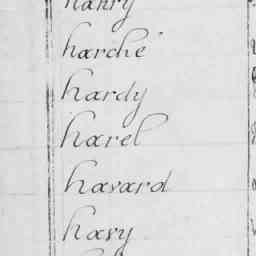 hanry
harché
hardy
harel
havard
havy